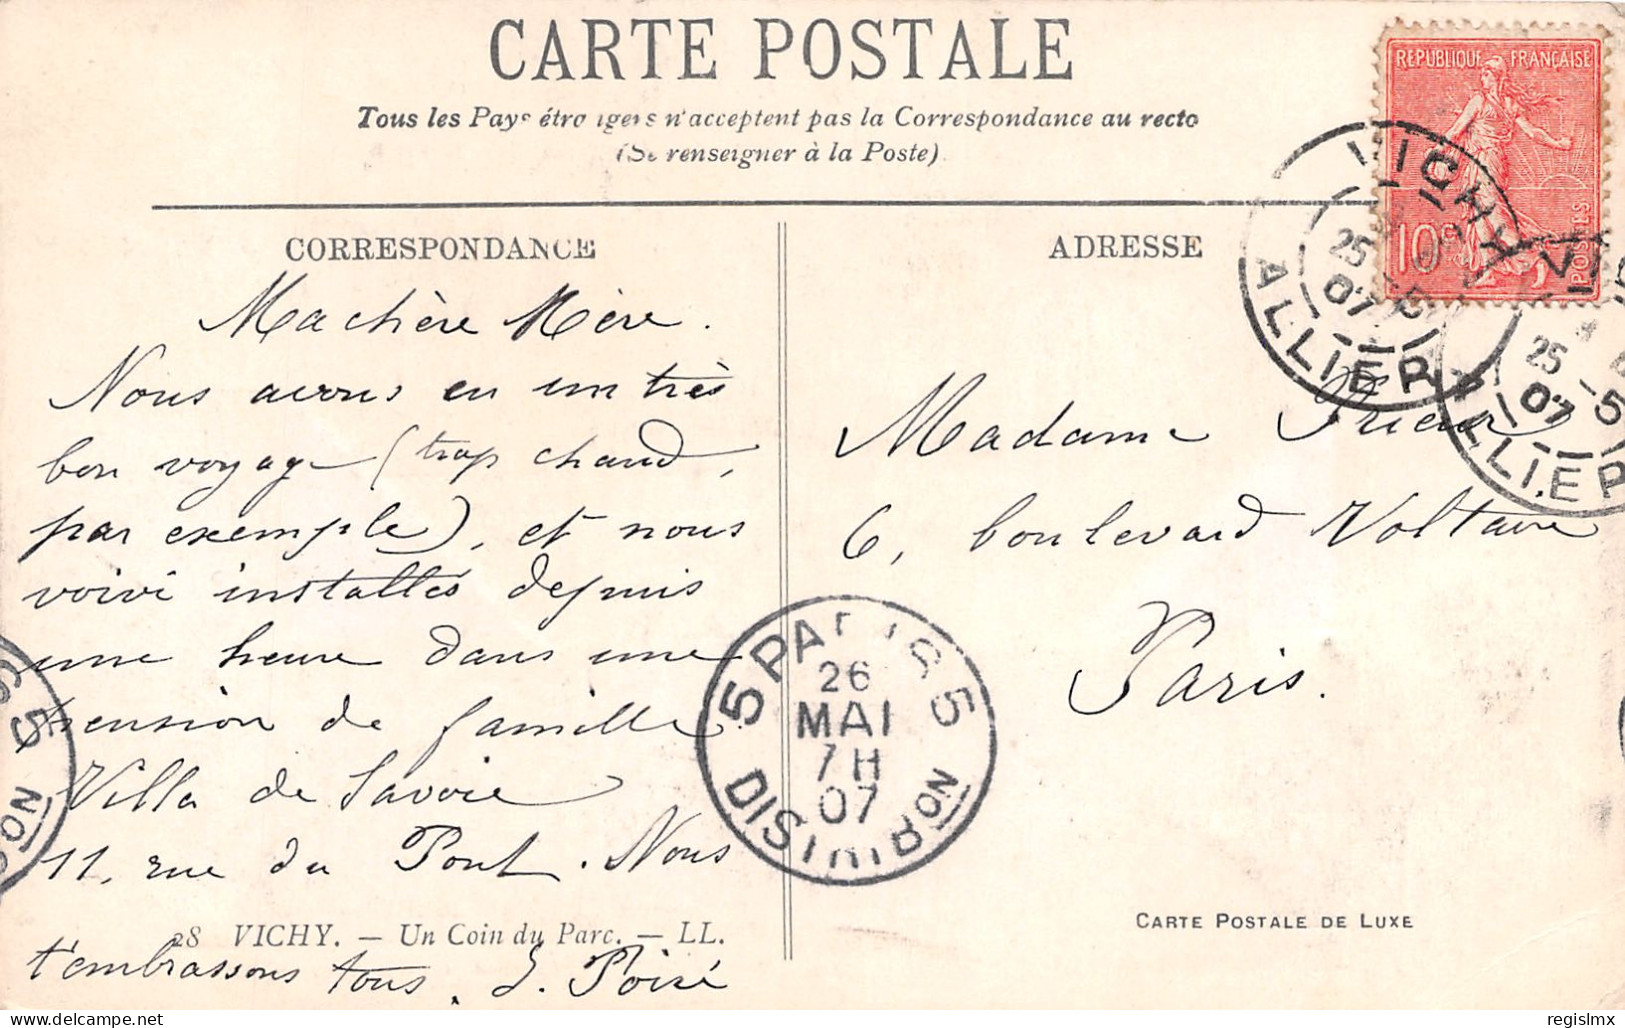 CARTE POSTALE
Tous les Pays étrangers n'acceptent pas la Correspondance au recto
(Se renseigner à la Poste)
REPUBLIQUE FRANÇAISE
10c
POSTES
VICHY
25 -5
07
ALLIER
25 -5
07
ALLIER
CORRESPONDANCE
Ma chère Mère.
Nous avons eu un très
bon voyage (trop chaud,
par exemple), et nous
voivi installés depuis
une heure dans une
pension de famille
Villa de Savoie
11, rue du Pont. Nous
28 VICHY. — Un Coin du Parc. — LL.
t'embrassons tous.
ADRESSE
Madame
6, boulevard Voltaire
Paris.
5 PARIS 5
26
MAI
7H
07
DISTRIBUTION
CARTE POSTALE DE LUXE
Delcampe.net
regislmx